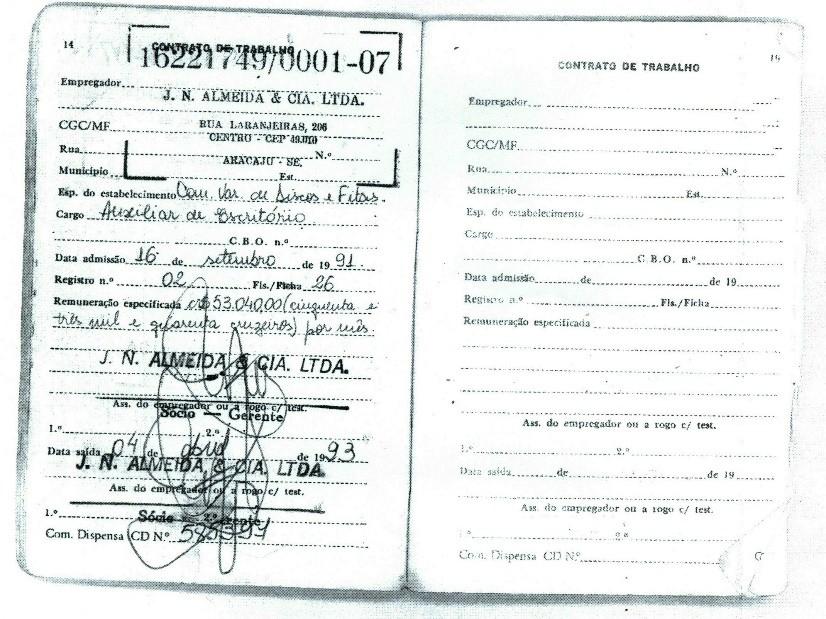 14
CONTRATO DE TRABALHO
16221749/0001-07
Empregador
J. N. ALMEIDA & CIA. LTDA.
CGC/MF RUA LARANJEIRAS, 206
CENTRO - CEP 49.010
Rua Nº
ARACAJU - SE.
Município Est.
Esp. do estabelecimento Com. Var. de Discos e Fitas.
Cargo Auxiliar de Escritório
C.B.O. n.º
Data admissão 16 de setembro de 1991
Registro n.º 02 Fls./Ficha 26
Remuneração especificada Cr$ 53.040,00 (cinquenta e
três mil e quarenta cruzeiros) por mês.
J. N. ALMEIDA & CIA. LTDA.
Ass. do empregador ou a rogo c/ test.
Sócio — Gerente
1.º 2.º
Data saída 04 de abril de 1993
J. N. ALMEIDA & CIA. LTDA.
Ass. do empregador ou a rogo c/ test.
1.º Sócio — 2.º Gerente
Com. Dispensa CD N.º
CONTRATO DE TRABALHO
Empregador
CGC/MF
Rua N.º
Município Est.
Esp. do estabelecimento
Cargo
C.B.O. n.º
Data admissão de de 19
Registro n.º Fls./Ficha
Remuneração especificada
Ass. do empregador ou a rogo c/ test.
1.º 2.º
Data saída de de 19
Ass. do empregador ou a rogo c/ test.
1.º 2.º
Com. Dispensa CD N.º